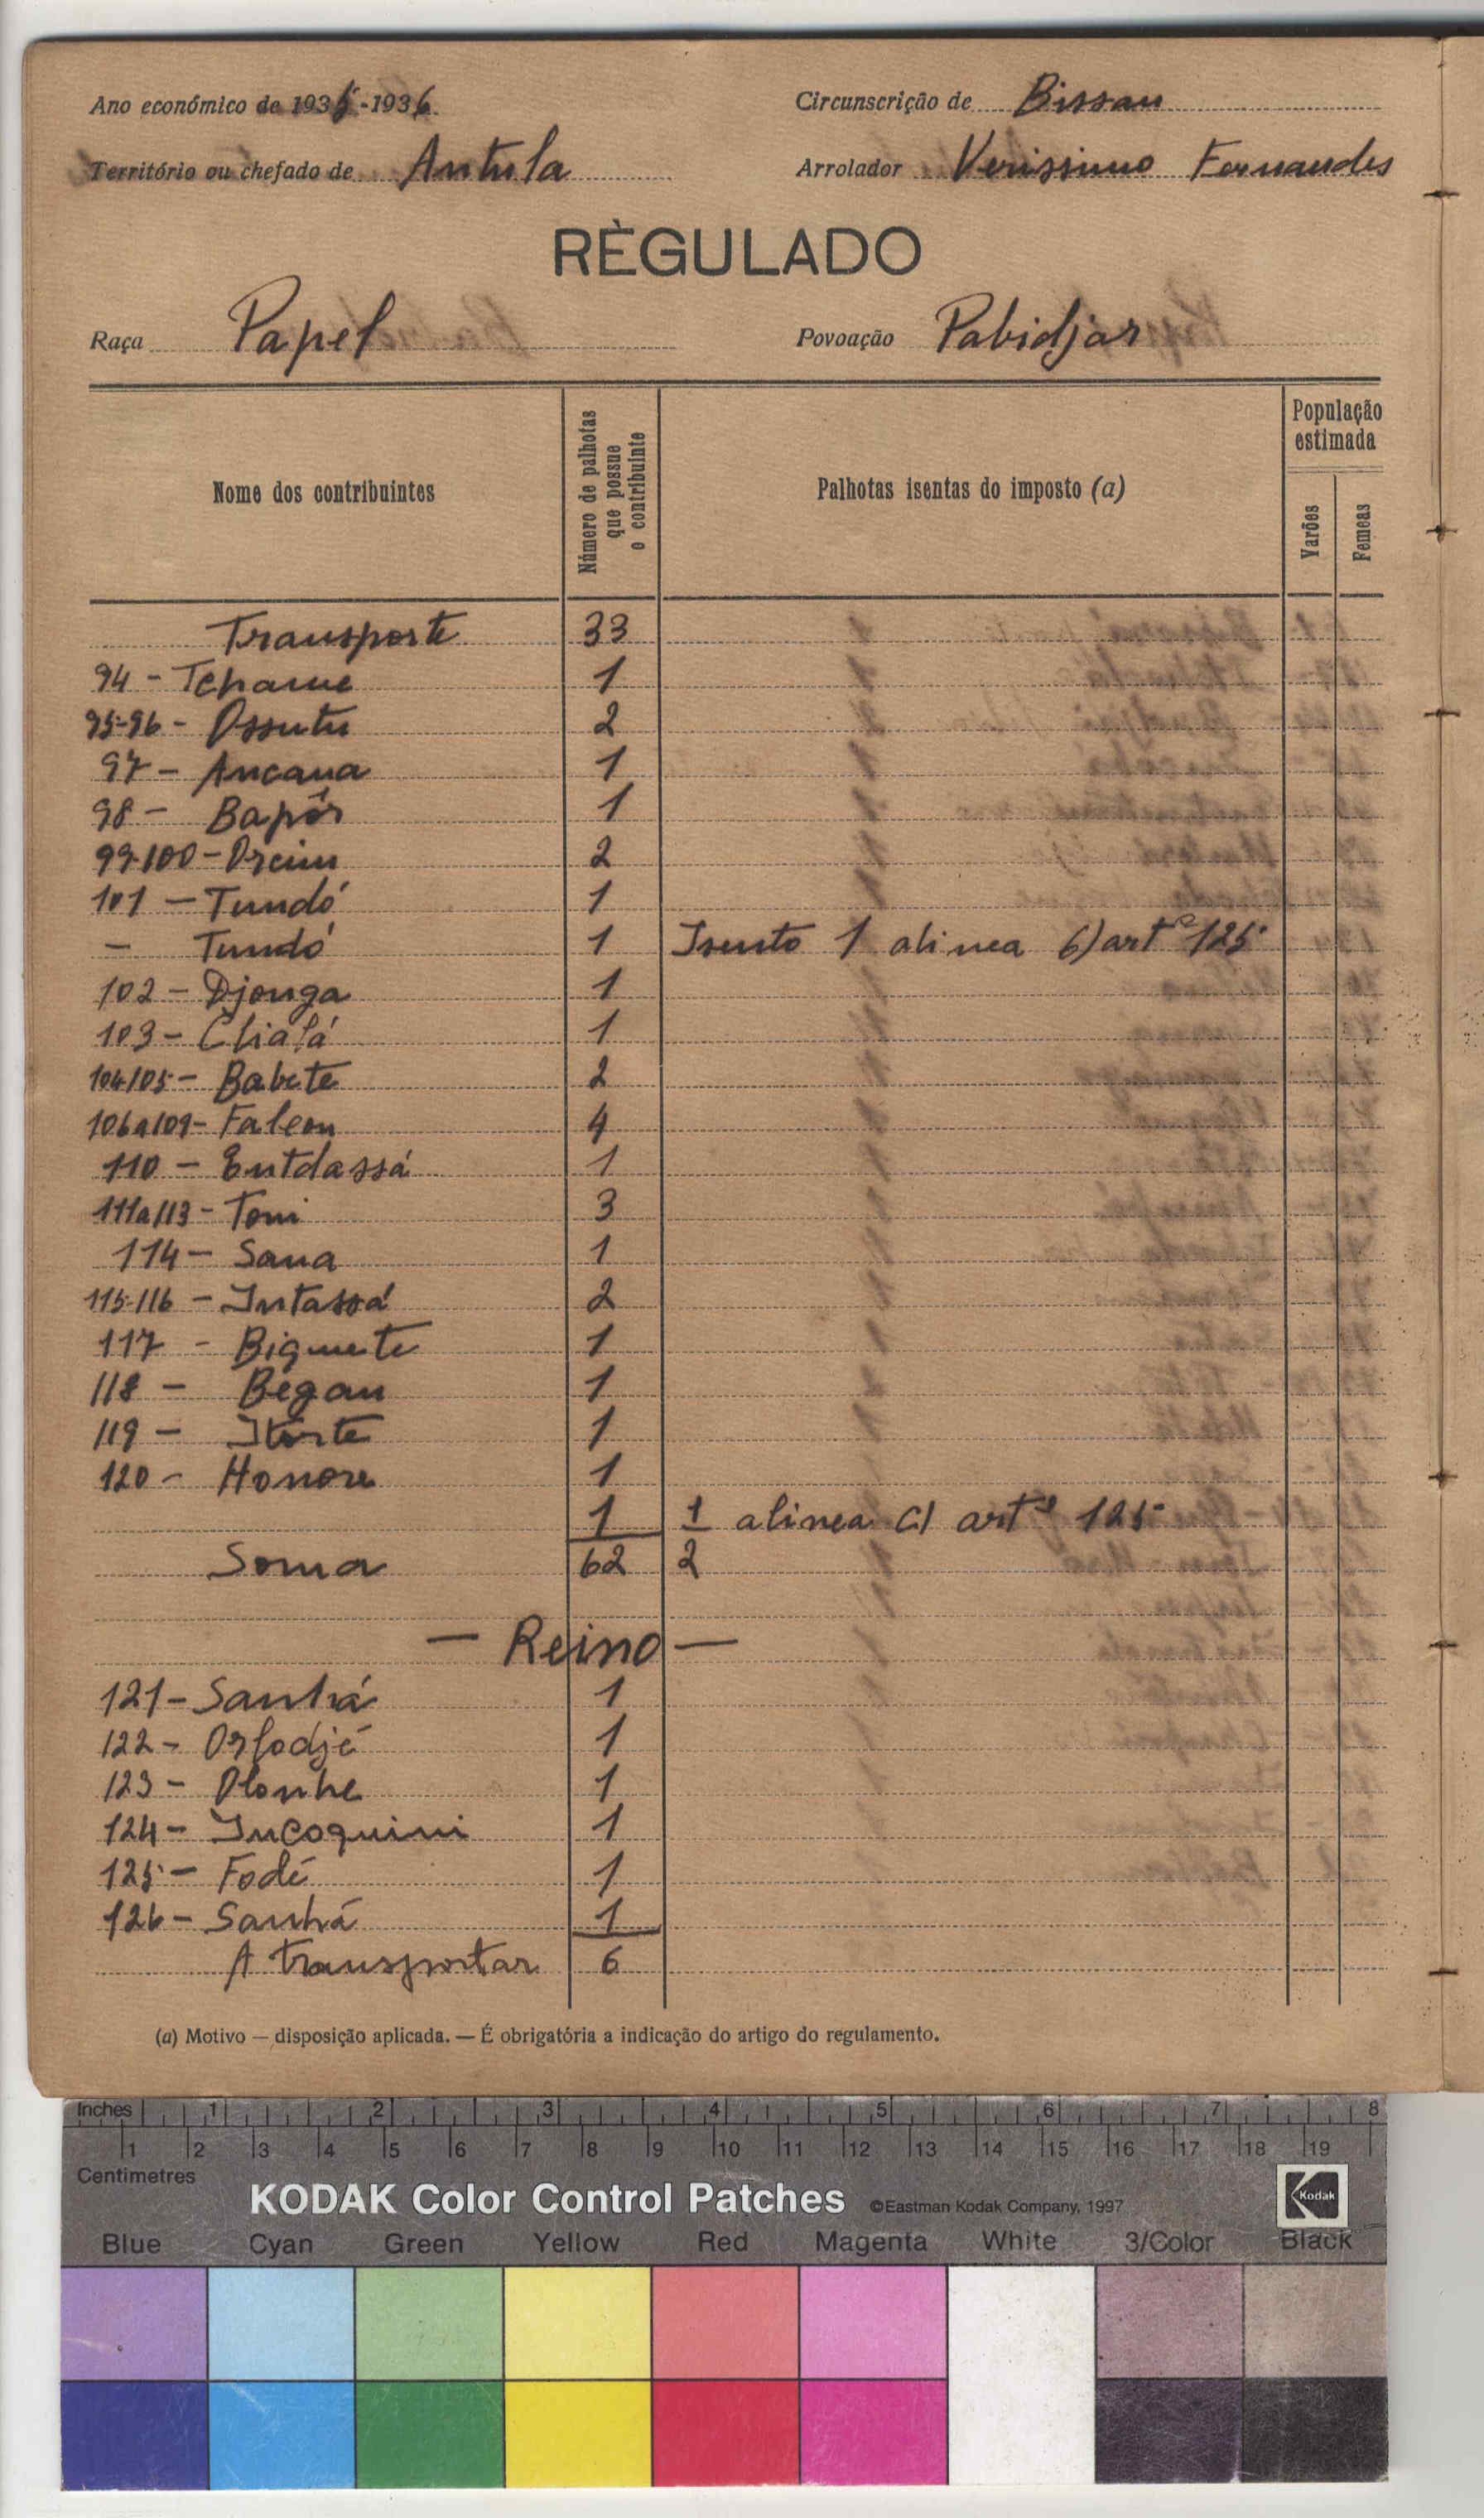 Ano económico de 1935-1936 Circunscrição de Bissau
Território ou chefado de Antula Arrolador Verissimo Fernandes
RÈGULADO
Raça Papel Povoação Pabidjar
Nome dos contribuintes
Número de palhotas que possue o contribuinte
Palhotas isentas do imposto (a)
População estimada
Varões
Femeas
Transporte 33
94 - Tchame 1
95-96 - Ossutu 2
97 - Ancana 1
98 - Bapôr 1
99-100 - Orcim 2
101 - Tundó 1
- Tundó 1 Isento 1 alinea b) artº 125
102 - Djonga 1
103 - Clialá 1
104/105 - Babete 2
106a109 - Faleou 4
110 - Entdassá 1
111a113 - Toni 3
114 - Sana 1
115-116 - Intassá 2
117 - Biguete 1
118 - Begau 1
119 - Itorte 1
120 - Honore 1
1 1 alinea C) artº 125
Soma 62 2
- Reino -
121 - Sanhá 1
122 - Orfodjé 1
123 - Olonhe 1
124 - Incoquini 1
125 - Fodé 1
126 - Sanhá 1
A transportar 6
(a) Motivo — disposição aplicada. — É obrigatória a indicação do artigo do regulamento.
Inches 1 2 3 4 5 6 7 8
1 2 3 4 5 6 7 8 9 10 11 12 13 14 15 16 17 18 19
Centimetres
KODAK Color Control Patches ©Eastman Kodak Company, 1997 Kodak
Blue Cyan Green Yellow Red Magenta White 3/Color Black